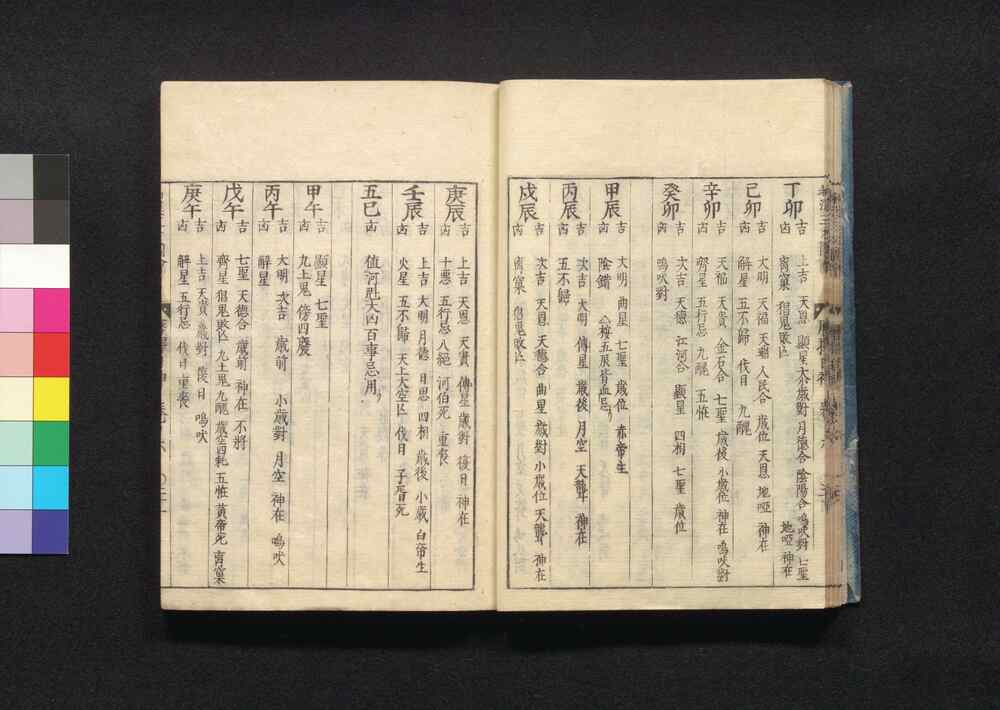 丁卯
吉 上吉 天恩 顯星 大歳對 月德合 陰陽合 鳴吠對 七聖
地啞 神在
凶
己卯
吉 大明 天福 天瑞 人民合 歳位 天恩 地啞 神在
凶 解星 五不歸 伐日 九醜
辛卯
吉 天福 天貴 金石合 七聖 歳後 小歳位 神在 鳴吠對
凶 五行忌 九醜
癸卯
吉 次吉 天德 江河合 顯星 四相 七聖 歳位
鳴吠對
凶
甲辰
吉 大明 曲星 七聖 歳位 赤帝生
凶 陰錯
丙辰
吉 次吉 大明 傳星 歳後 月空 天聾 神在
凶 五不歸
戊辰
吉 次吉 天恩 天德合 曲星 歳對 小歳位 天聾 神在
凶
庚辰
吉 上吉 天恩 天貴 傳星 歳對 復日 神在
凶 十悪 五行忌 八絕 河伯死 重喪
壬辰
吉 上吉 大明 月德 日恩 四相 歳後 小歳 白帝生
凶 火星 五不歸 天上大空亡 伐日 子胥死
五巳
凶 值河魁大凶百事忌用
甲午
吉 顯星 七聖
凶 九土鬼 傍四廢
丙午
吉 大明 次吉 歳前 小歳對 月空 神在 鳴吠
凶 解星
戊午
吉 七聖 天德合 歳前 神在 不將
凶 九土鬼 九醜 黃帝死
庚午
吉 上吉 天貴 歳對 復日 鳴吠
凶 解星 五行忌 伐日 重喪